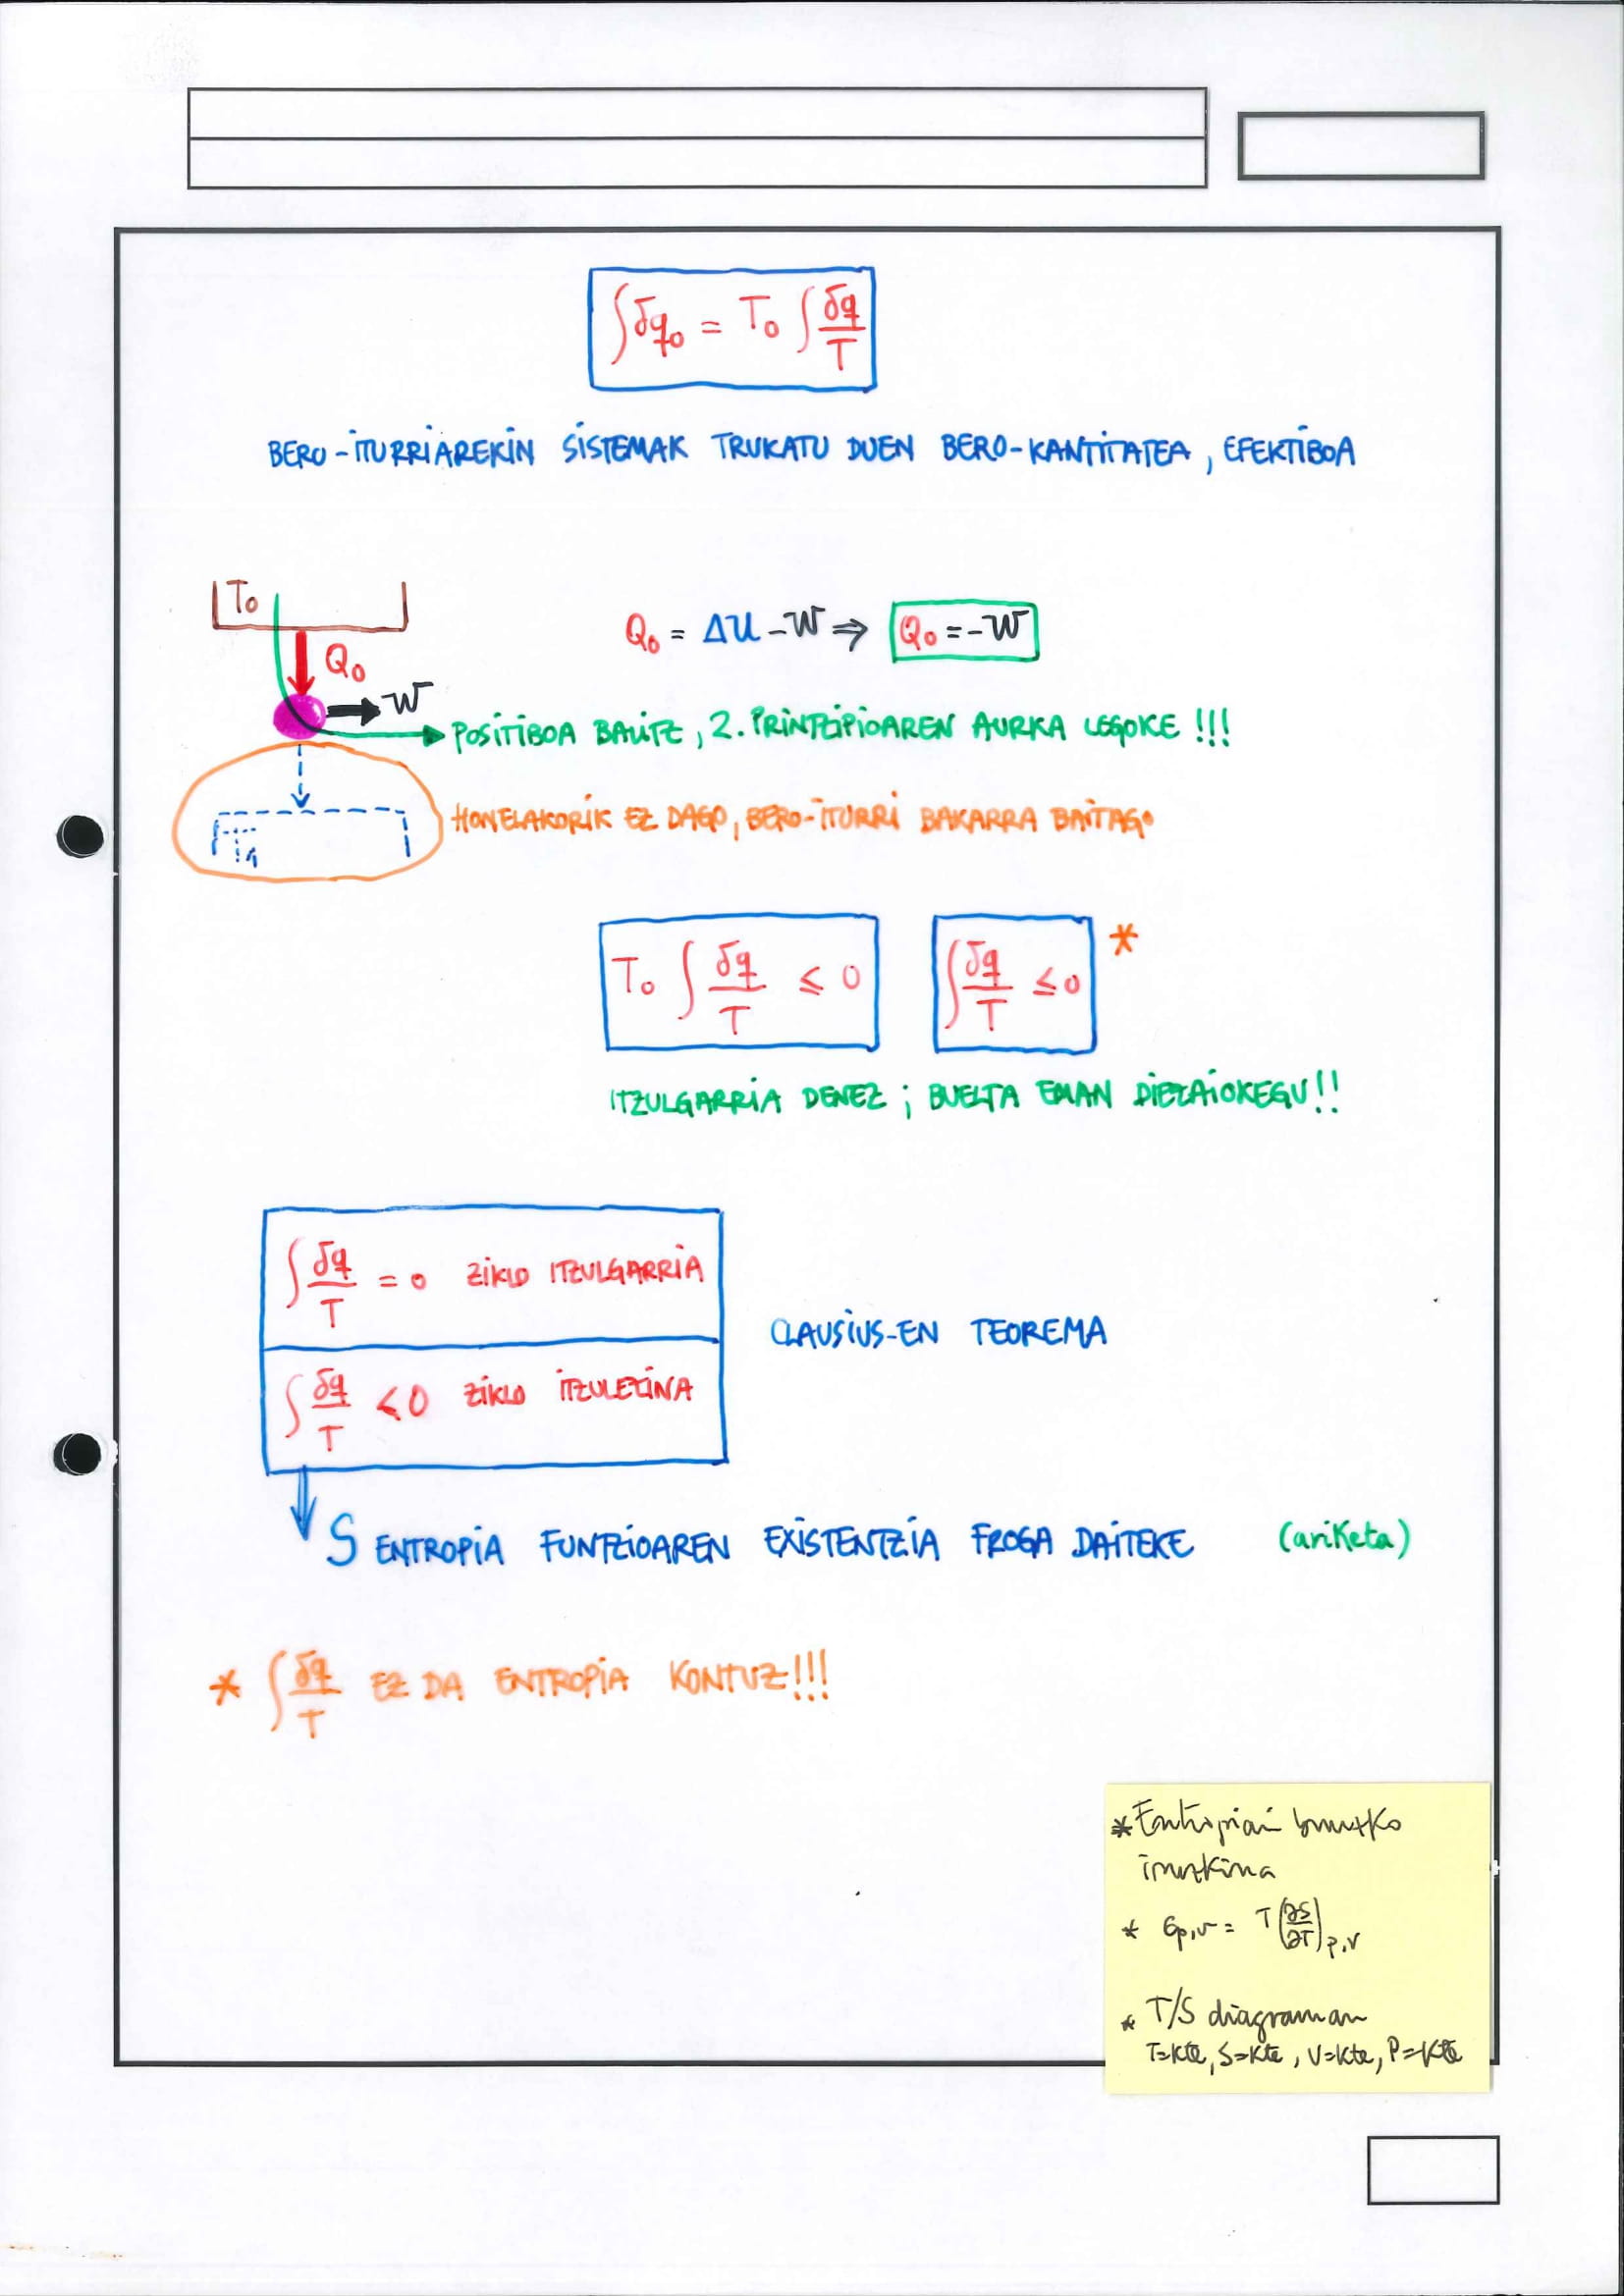 ∫δq₀ = T₀ ∫ δq/T
BERO-ITURRIAREKIN SISTEMAK TRUKATU DUEN BERO-KANTITATEA, EFEKTIBOA
T₀
Q₀ = ΔU - W ⇒ Q₀ = -W
Q₀
W
POSITIBOA BALITZ, 2. PRINTZIPIOAREN AURKA LEGOKE !!!
HONELAKORIK EZ DAGO, BERO-ITURRI BAKARRA BAITAGO
T₁
T₀ ∫ δq/T ≤ 0 ∫ δq/T ≤ 0 *
ITZULGARRIA DENEZ ; BUELTA EMAN DIEZAIOKEGU!!
∫ δq/T = 0 ZIKLO ITZULGARRIA
CLAUSIUS-EN TEOREMA
∫ δq/T < 0 ZIKLO ITZULEZINA
S ENTROPIA FUNTZIOAREN EXISTENTZIA FROGA DAITEKE (ariketa)
* ∫ δq/T EZ DA ENTROPIA KONTUZ!!!
* Entropiari buruzko
iruzkina
* Cp,v = T(∂S/∂T)p,v
* T/S diagraman
T=kte, S=kte, V=kte, P=kte